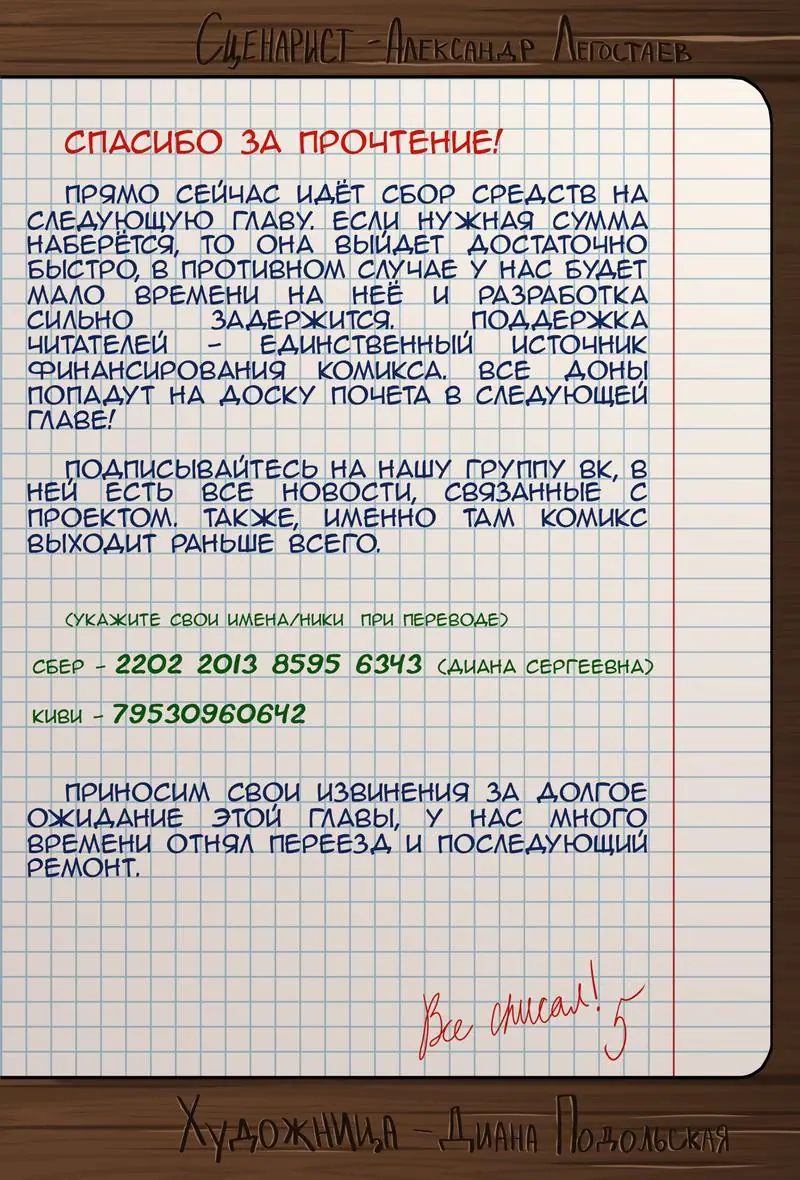 Сценарист - Александр Легостаев
СПАСИБО ЗА ПРОЧТЕНИЕ!
ПРЯМО СЕЙЧАС ИДЁТ СБОР СРЕДСТВ НА
СЛЕДУЮЩУЮ ГЛАВУ. ЕСЛИ НУЖНАЯ СУММА
НАБЕРЁТСЯ, ТО ОНА ВЫЙДЕТ ДОСТАТОЧНО
БЫСТРО, В ПРОТИВНОМ СЛУЧАЕ У НАС БУДЕТ
МАЛО ВРЕМЕНИ НА НЕЁ И РАЗРАБОТКА
СИЛЬНО ЗАДЕРЖИТСЯ. ПОДДЕРЖКА
ЧИТАТЕЛЕЙ - ЕДИНСТВЕННЫЙ ИСТОЧНИК
ФИНАНСИРОВАНИЯ КОМИКСА. ВСЕ ДОНЫ
ПОПАДУТ НА ДОСКУ ПОЧЕТА В СЛЕДУЮЩЕЙ
ГЛАВЕ!
ПОДПИСЫВАЙТЕСЬ НА НАШУ ГРУППУ ВК, В
НЕЙ ЕСТЬ ВСЕ НОВОСТИ, СВЯЗАННЫЕ С
ПРОЕКТОМ. ТАКЖЕ, ИМЕННО ТАМ КОМИКС
ВЫХОДИТ РАНЬШЕ ВСЕГО.
(УКАЖИТЕ СВОИ ИМЕНА/НИКИ ПРИ ПЕРЕВОДЕ)
СБЕР - 2202 2013 8595 6343 (ДИАНА СЕРГЕЕВНА)
КИВИ - 79530960642
ПРИНОСИМ СВОИ ИЗВИНЕНИЯ ЗА ДОЛГОЕ
ОЖИДАНИЕ ЭТОЙ ГЛАВЫ, У НАС МНОГО
ВРЕМЕНИ ОТНЯЛ ПЕРЕЕЗД И ПОСЛЕДУЮЩИЙ
РЕМОНТ.
Все списал! 5
Художница - Диана Подольская